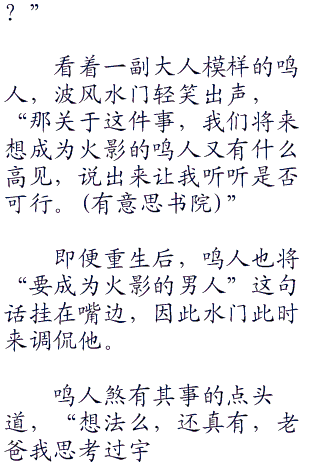 ？”
看着一副大人模样的鸣
人，波风水门轻笑出声，
“那关于这件事，我们将来
想成为火影的鸣人又有什么
高见，说出来让我听听是否
可行。(有意思书院)”
即便重生后，鸣人也将
“要成为火影的男人”这句
话挂在嘴边，因此水门此时
来调侃他。
鸣人煞有其事的点头
道，“想法么，还真有，老
爸我思考过宇